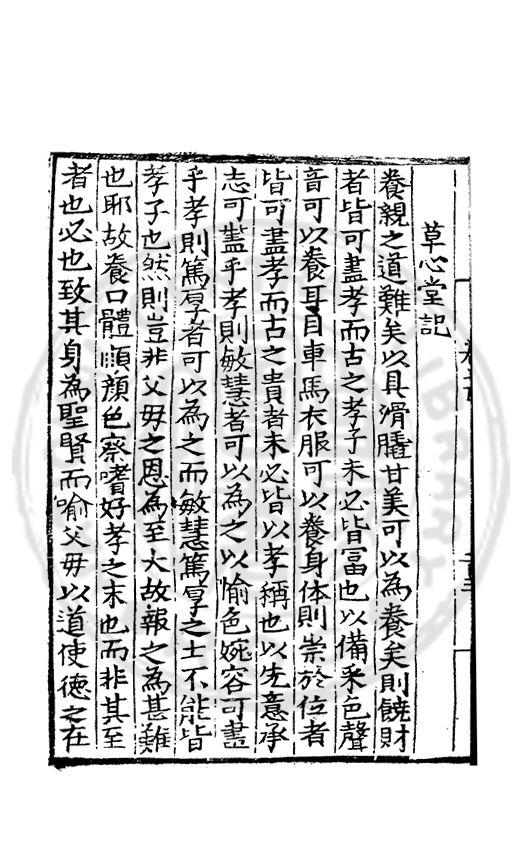 草心堂記
養親之道難矣以具滑膬甘美可以為養矣則饒財
者皆可盡孝而古之孝子未必皆富也以備采色聲
音可以養耳目車馬衣服可以養身体則崇於位者
皆可盡孝而古之貴者未必皆以孝稱也以先意承
志可盡乎孝則敏慧者可以為之以愉色婉容可盡
乎孝則篤厚者可以為之而敏慧篤厚之士不能皆
孝子也然則豈非父母之恩為至大故報之為甚難
也耶故養口體順顔色察嗜好孝之末也而非其至
者也必也致其身為聖賢而喻父毋以道使德之在